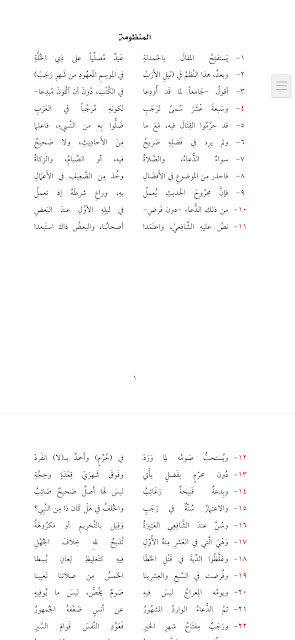 المنظومة
١- يَستفتِحُ المقالَ بالحَمدلةِ عَبدٌ مُصلِّياً على ذِي الخُلَّةِ
٢- وبعدُ، هذا النَّظمُ في (نَيلِ الأَرَبْ في الموسِمِ المَعهُودِ مِن شَهرِ رَجَبْ)
٣- أقولُ -جَامعاً لما قَد أُودِعا في الكُتْبِ، دُونَ أن أكُونَ مُبدِعا-
٤- وَسَبعةَ عَشْرَ سُمىً لرَجَبِ لكونهِ مُرجَّباً في العَرَبِ
٥- قد حرَّمُوا القِتَالَ فيه، مَعَ ما ضَلُّوا بِهِ من النَّسيءِ، فاعلما
٦- ولم يرِد في فضلِهِ صَريحُ مِنَ الأحاديثِ، ولا صَحيحُ
٧- سواءٌ الدُّعاءُ، والصَّلاةُ فيه، أو الصِّيامُ، والزكاةُ
٨- فاحذر من الموضوعِ في الأفضالِ وخُذ مِن الضَّعيفِ في الأعمَالِ
٩- فإنَّ مجرُوحَ الحَديثِ يُعملُ بهِ، وراعِ شرطَهُ إذ تعمَلُ
١٠- من ذلك الدُّعاء -دون فَرضِ- في ليلِهِ الأوَّلِ عندَ البَعضِ
١١- نصَّ عليهِ الشَّافِعيْ، واعتَمَدا أصحابُنا، والبعضُ ذاك استَبعدا
١
١٢- ويُستحبُّ صَومُه لِما وَرَدْ في (حُرُمٍ) وأحمدٌ بـ(لا) انفَردْ
١٣- دُون محرّمٍ بفَضلٍ يأتي وفَوقَ شَهرَيْ قِعْدَةٍ وحِجَّةِ
١٤- وبِدعةٌ قَبيحةٌ رَغائبُ ليسَ لَها أصلٌ صَحيحٌ صَائبُ
١٥- والاعتِمارُ سُنَّةٌ في رَجَبِ والخُلفُ في هَلْ كَان ذا مِن النَّبِي؟
١٦- وسُنَّ عندَ الشَّافعِيْ العَتِيرَةُ وَقِيلَ بالتَّحريمِ أو مَكرُوهَةُ
١٧- وَهْيَ الَّتي في العَشرِ مِنهُ الأُوَّلِ تُذبَحُ لله خِلافَ الجُهَّلِ
١٨- وغَلَّظُوا الدِّيةَ في قَتْلِ الخَطَا فِيهِ كتَغلِيظٍ لِعَانٍ بُسِطا
١٩- وفُرِضت في السَّبعِ والعِشرِينا الخَمسُ مِن صَلاتنا تَعيينا
٢٠- ويَومُه المِعراجُ لَيسَ فِيهِ صَومٌ يَخُصُّ، ليسَ ما يُوفِيهِ
٢١- ثمَّ الدُّعاءُ الواردُ المَشْهُورُ عن أنَسٍ ضَعَّفهُ الجمهورُ
٢٢- ورَجَبٌ مِفتَاحُ شَهرِ الخَيرِ فَعَوِّدِ النَّفسَ قَوامَ السَّيرِ